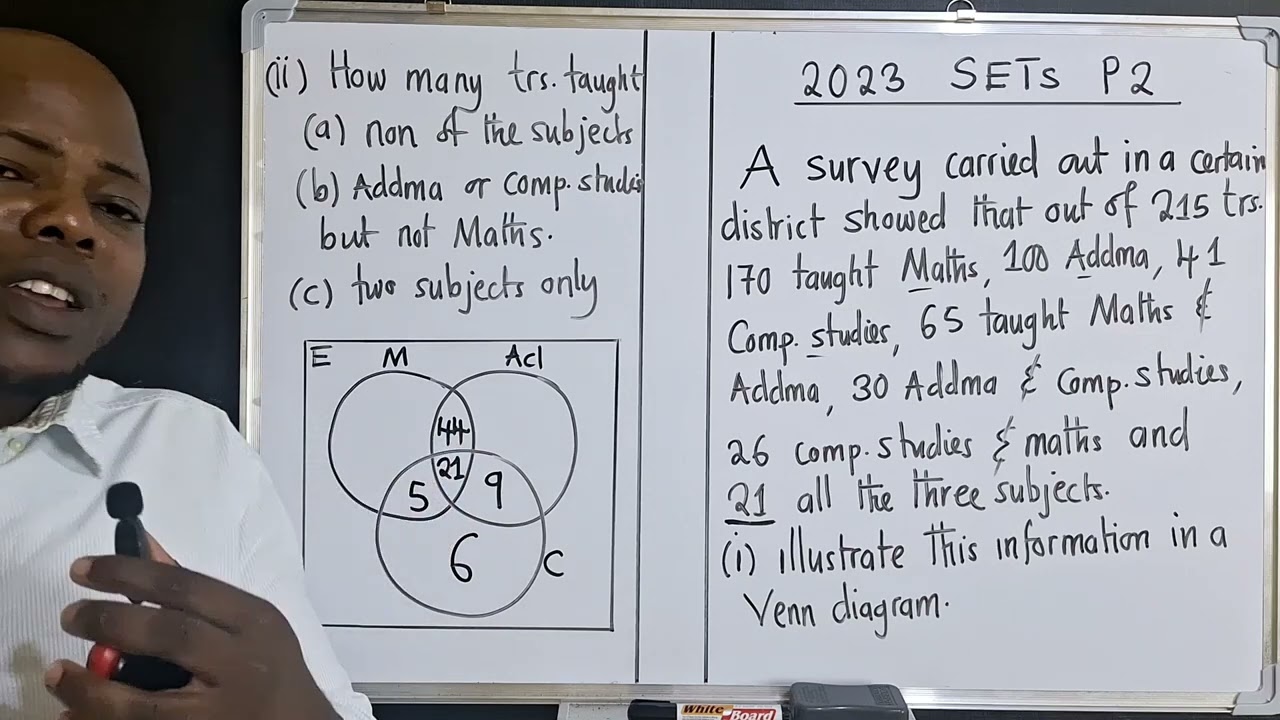 (ii) How many trs. taught
(a) non of the subjects
(b) Addma or Comp. studies
but not Maths.
(c) two subjects only
E M Ad
44
21
5 9
6 C
2023 SETs P2
A survey carried out in a certain
district showed that out of 215 trs.
170 taught Maths, 100 Addma, 41
Comp. studies, 65 taught Maths &
Addma, 30 Addma & Comp. studies,
26 comp. studies & maths and
21 all the three subjects.
(i) illustrate this information in a
Venn diagram.
White
Board